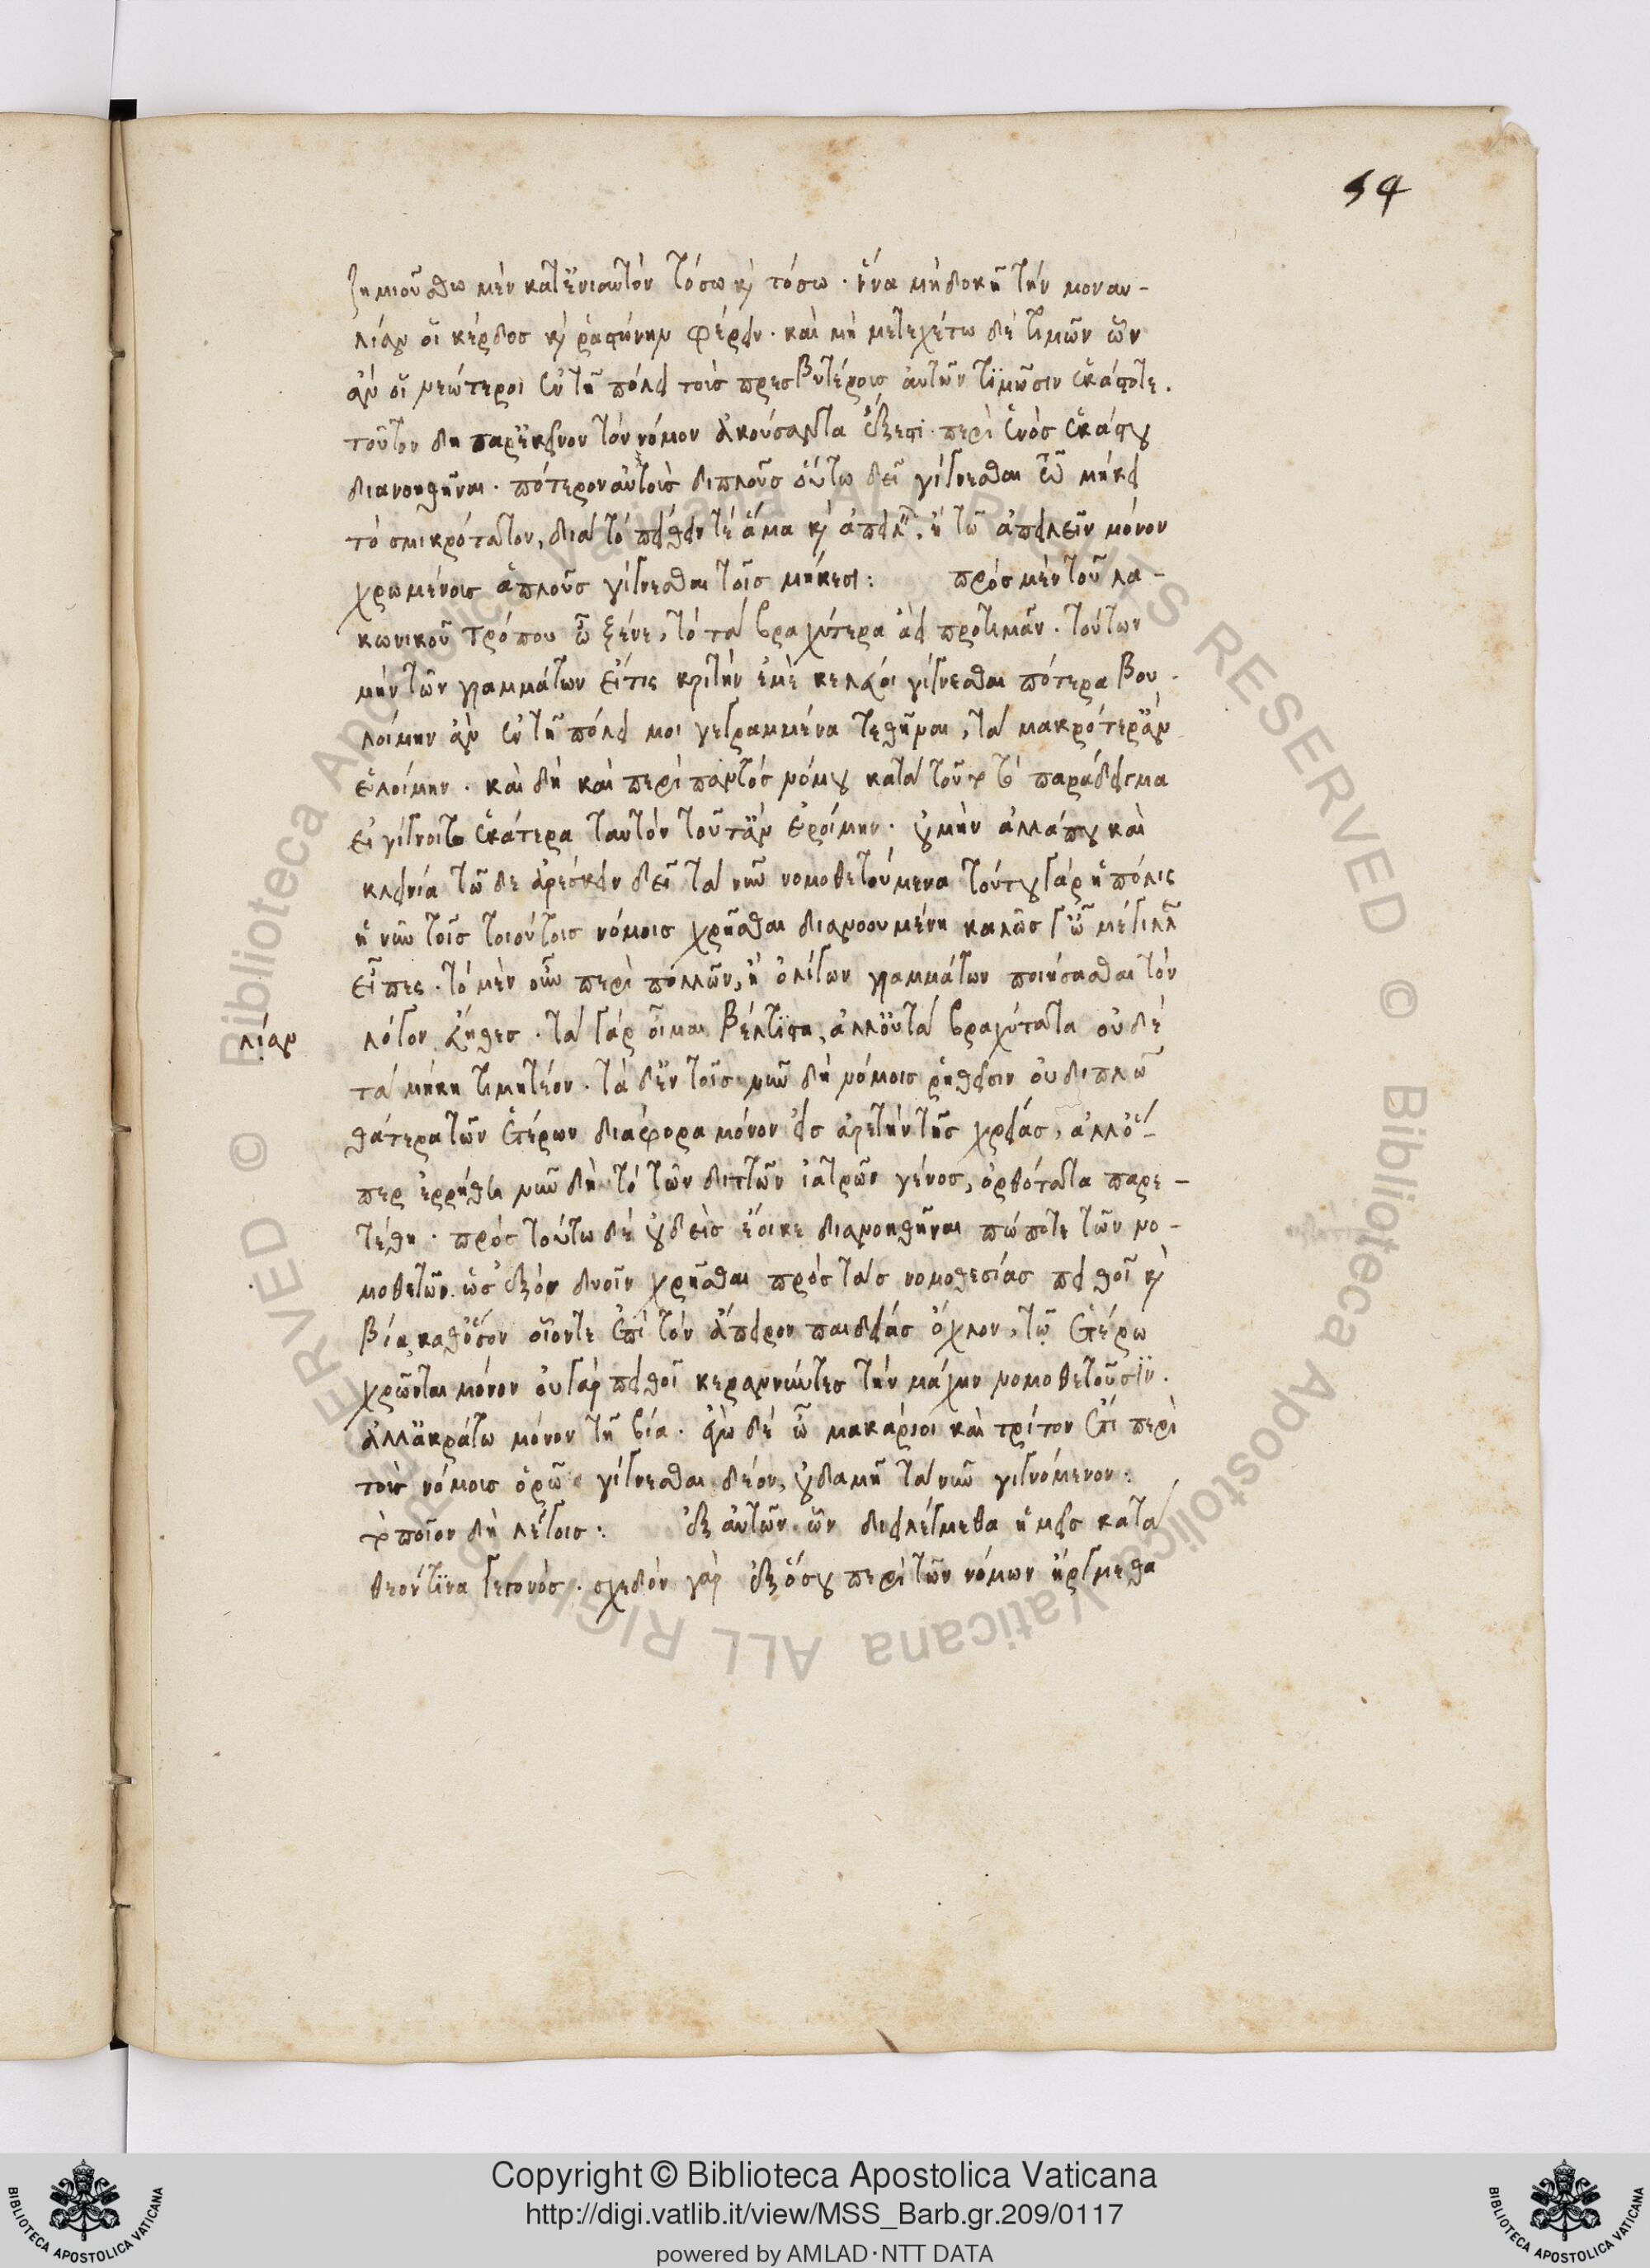 54
ζημιούσθω μὲν κατ' ἐνιαυτὸν τόσω κ τόσω · ἵνα μὴ δοκῆ τὴν μοναυ-
λίαν οἱ κέρδος κ ῥαστώνην φέρειν · καὶ μὴ μετεχέτω δὲ τιμῶν ὧν
ἂν οἱ νεώτεροι ἐν τῇ πόλει τοὺς πρεσβυτέρους αὐτῶν τιμῶσιν ἑκάστοτε.
τοῦτον δὴ παρ' ἐκεῖνον τὸν νόμον ἀκούσαντα ἔξεστι · περὶ ἑνὸς ἑκάστου
διανοηθῆναι · πότερον αὐτοὺς διπλοῦς οὕτω δεῖ γίγνεσθαι τῶ μήκει
τὸ σμικρότατον, διὰ τὸ πείθειν τὲ ἅμα κ ἀπειλεῖν, ἢ τῶ ἀπειλεῖν μόνον
χρωμένους ἁπλοῦς γίγνεσθαι τοῖς μήκεσι : πρὸς μὲν τοῦ λα-
κωνικοῦ τρόπου ὦ ξένε, τὸ τὰ βραχύτερα ἀεὶ προτιμᾶν · τούτων
μὴν τῶν γραμμάτων εἴ τις κριτὴν ἐμὲ κελεύοι γίγνεσθαι πότερα βου-
λοίμην ἂν ἐν τῇ πόλει μοι γεγραμμένα τεθῆναι, τὰ μακρότερ' ἂν
ἑλοίμην · καὶ δὴ καὶ περὶ παντὸς νόμου κατὰ τοῦτο τὸ παράδειγμα
εἰ γίγνοιτο ἑκάτερα ταυτὸν τοῦτ' ἂν ἑροίμην · οὐ μὴν ἀλλά που καὶ
κλεινία τῶ δε ἀρέσκειν δεῖ τὰ νῦν νομοθετούμενα τούτου γὰρ ἡ πόλις
ἡ νῦν τοῖς τοιούτοις νόμοις χρῆσθαι διανοουμένη καλῶς γ' ὦ μέγιλλε
εἶπες · τὸ μὲν οὖν περὶ πολλῶν, ἢ ὀλίγων γραμμάτων ποιήσασθαι τὸν
λίαν
λόγον εὔηθες · τὰ γὰρ οἶμαι βέλτιστα, ἀλλ' οὐ τὰ βραχύτατα οὐδὲ
τὰ μήκη τιμητέον · τὰ δ' ἐν τοῖς νῦν δὴ νόμοις ῥηθεῖσιν οὐ διπλῶ
θάτερα τῶν ἑτέρων διάφορα μόνον εἰς ἀρετὴν τῆς χρείας, ἀλλ' ὅ-
περ ἐρρήθη νῦν δὴ τὸ τῶν διττῶν ἰατρῶν γένος, ὀρθότατα παρε-
τέθη · πρὸς τούτω δὲ οὐδεὶς ἔοικε διανοηθῆναι πώποτε τῶν νο-
μοθετῶν · ὡς ἐξὸν δυοῖν χρῆσθαι πρὸς τὰς νομοθεσίας πειθοῖ κ
βία, καθ' ὅσον οἷόν τε ἐπὶ τὸν ἄπειρον παιδείας ὄχλον, τῷ ἑτέρω
χρῶνται μόνον οὐ γὰρ πειθοῖ κεραννύντες τὴν μάχην νομοθετοῦσιν.
ἀλλ' ἀκράτω μόνον τῆ βία · ἐγὼ δὲ ὦ μακάριοι καὶ τρίτον ἔτι περὶ
τοὺς νόμους ὁρῶ γίγνεσθαι δέον, οὐδαμῆ τὰ νῦν γιγνόμενον :
τὸ ποῖον δὴ λέγεις : ἐξ αὐτῶν ὧν διειλέγμεθα ἡμεῖς κατὰ
θεόν τινα γεγονός · σχεδὸν γὰρ ἐξ ὅσου περὶ τῶν νόμων ἤργμεθα
Copyright © Biblioteca Apostolica Vaticana
http://digi.vatlib.it/view/MSS_Barb.gr.209/0117
powered by AMLAD·NTT DATA